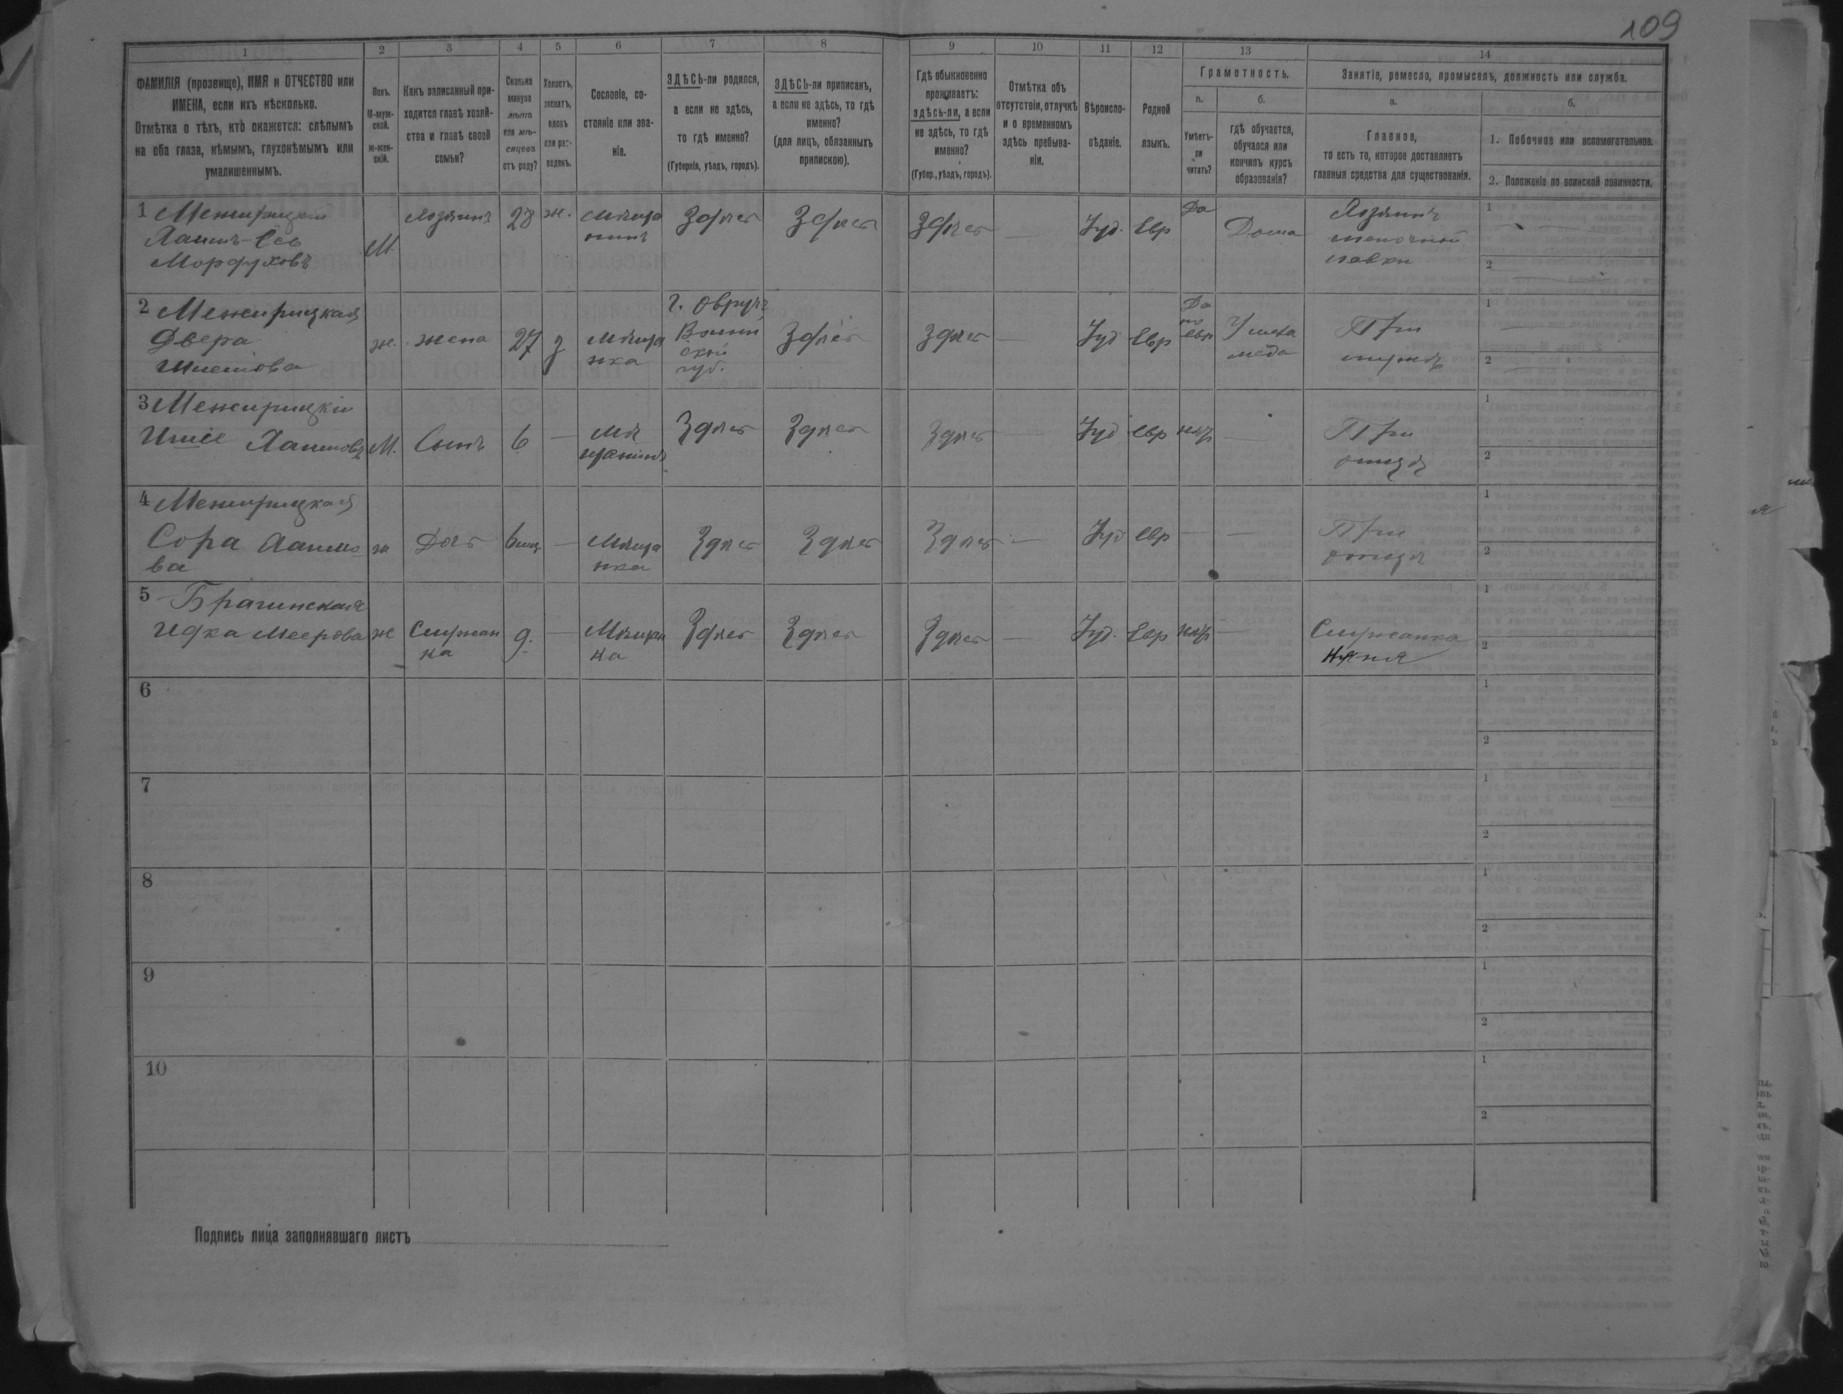 109
1 2 3 4 5 6 7 8 9 10 11 12 13 14
ФАМИЛІЯ (прозвище), ИМЯ и ОТЧЕСТВО или
ИМЕНА, если ихъ нѣсколько.
Отмѣтка о тѣхъ, кто окажется: слѣпымъ
на оба глаза, нѣмымъ, глухонѣмымъ или
умалишеннымъ.
Полъ.
М-муж-
ской.
ж-жен-
скій.
Какъ записанный при-
ходится главѣ хозяй-
ства и главѣ своей
семьи?
Сколько
минуло
лѣтъ
или мѣ-
сяцевъ
отъ роду?
Холостъ,
женатъ,
вдовъ
или раз-
веденъ.
Сословіе, со-
стояніе или зва-
ніе.
ЗДѢСЬ-ли родился,
а если не здѣсь,
то гдѣ именно?
(Губернія, уѣздъ, городъ).
ЗДѢСЬ-ли приписанъ,
а если не здѣсь, то гдѣ
именно?
(для лицъ, обязанныхъ
припискою).
Гдѣ обыкновенно
проживаетъ:
здѣсь-ли, а если
не здѣсь, то гдѣ
именно?
(Губер., уѣздъ, городъ).
Отмѣтка объ
отсутствіи, отлучкѣ
и о временномъ
здѣсь пребыва-
ніи.
Вѣроиспо-
вѣданіе.
Родной
языкъ.
Грамотность.
а.
Умѣетъ-
ли
читать?
б.
гдѣ обучается,
обучался или
кончилъ курсъ
образованія?
Занятіе, ремесло, промыселъ, должность или служба.
а.
Главное,
то есть то, которое доставляетъ
главныя средства для существованія.
б.
1. Побочное или вспомогательное.
2. Положеніе по воинской повинности.
1 Межирицкій
Хаимъ-Лев
Мордуховъ
М
Хозяинъ
28
ж.
мѣща
нинъ
Здѣсь
Здѣсь
Здѣсь
—
Iуд.
Евр
Да
Дома
Хозяинъ
мелочной
лавки
1
2
2 Межирицкая
Двера
ж.
жена
27
з
мѣща
нка
г. Овручъ
Волын
ской
губ.
Здѣсь
Здѣсь
—
Iуд
Евр
Да
по
евр
У мела
меда
При
мужѣ
1
2
3 Межирицкій
Хаимовъ
М.
Сынъ
6
—
мѣ
щанинъ
Здѣсь
Здѣсь
Здѣсь
—
Iуд
евр
нѣт
—
При
отцѣ
1
2
4 Межирицкая
Сора Хаимо
ва
ж
Дочь
6 мц
—
Мѣща
нка
Здѣсь
Здѣсь
Здѣсь
—
Iуд
евр
—
—
При
отцѣ
1
2
5 Брагинская
Идка Меерова
ж
Служан
ка
9.
—
Мѣщан
ка
Здѣсь
Здѣсь
Здѣсь
—
Iуд.
Евр
нѣт
—
Служанка
няня
1
2
6
1
2
7
1
2
8
1
2
9
1
2
10
1
2
Подпись лица заполнявшаго листъ